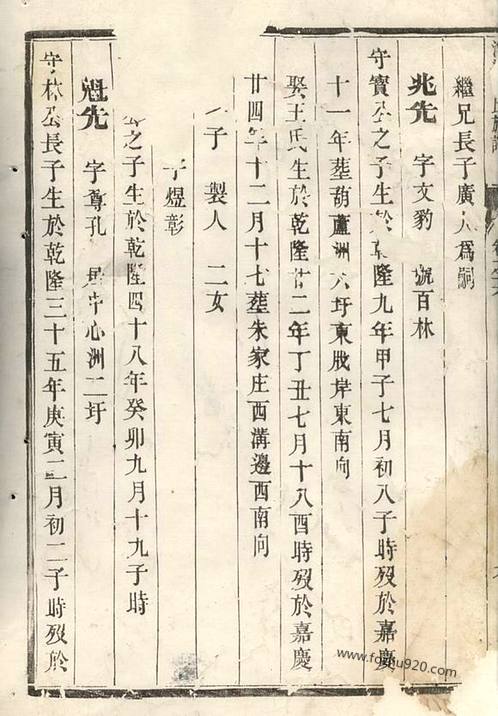 繼兄長子廣人為嗣
兆先 字文豹 號百林
守實公之子生於乾隆九年甲子七月初八子時歿於嘉慶
十一年葬葫蘆洲六圩東戗岸東南向
娶王氏生於乾隆廿二年丁丑七月十八酉時歿於嘉慶
廿四年十二月十七葬朱家庄西溝邊西南向
子 製人 二女
子煜彰
之子生於乾隆四十八年癸卯九月十九子時
魁先 字尊孔 居中心洲二圩
守林公長子生於乾隆三十五年庚寅二月初二子時歿於
www.foupu920.com